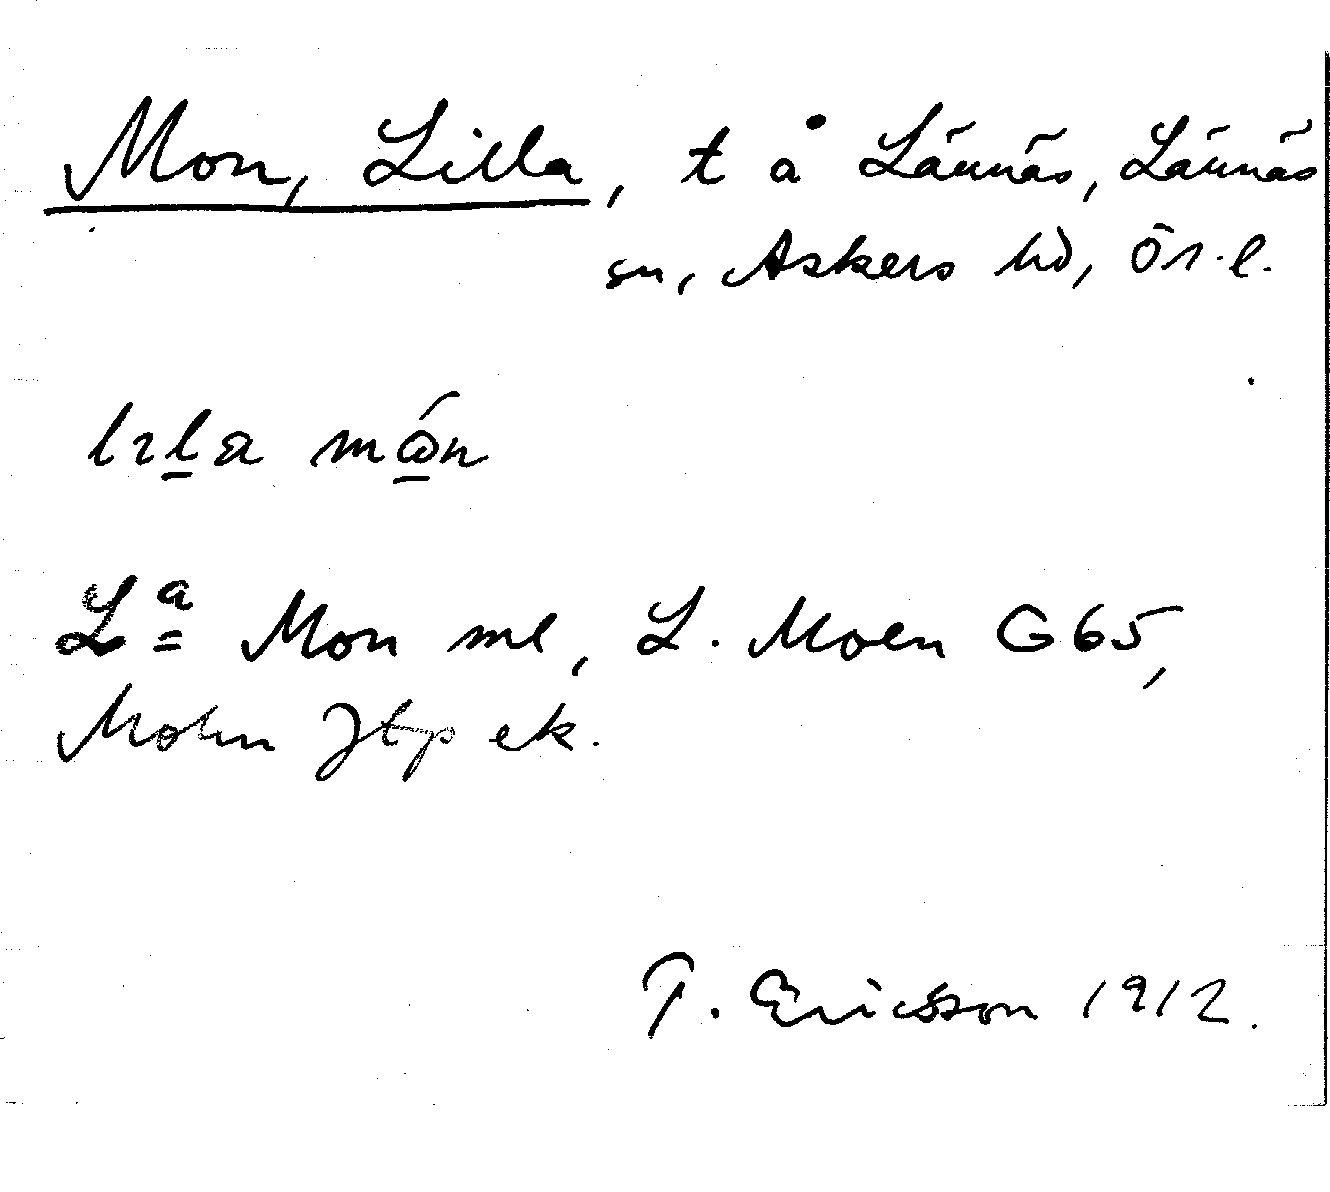 Mon, Lilla, t å Lännäs, Lännäs
sn, Askers hd, Ör. l.
L:a Mon ml, L. Moen G65,
Mohn Jtp ek.
T. Ericsson 1912.